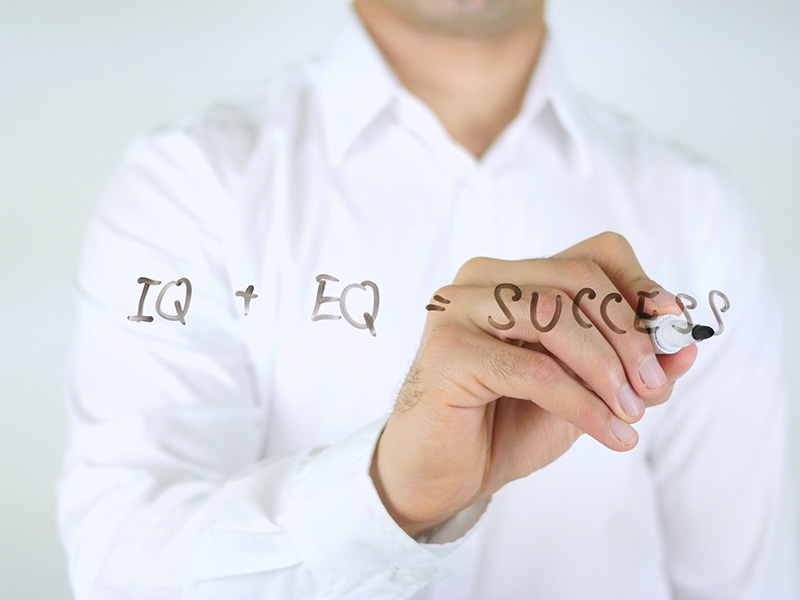 IQ + EQ = SUCCESS